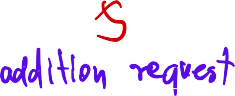 5
addition request